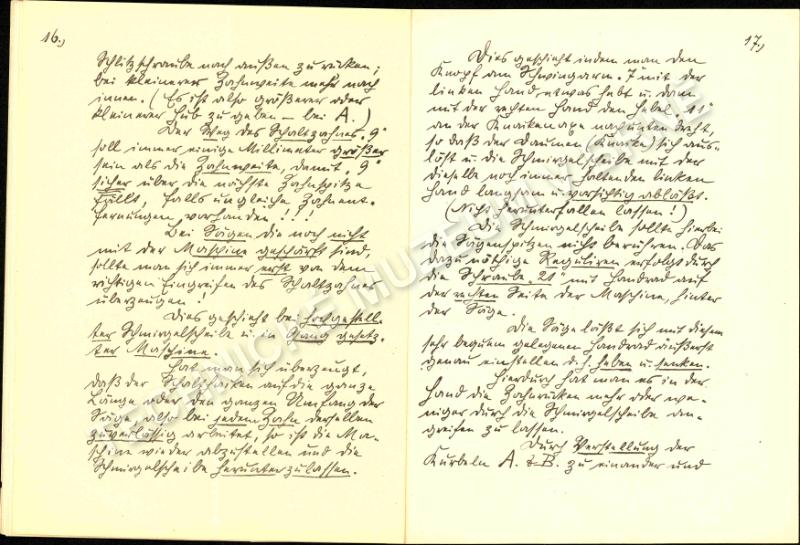 16.,
Schlitzschraube nach außen zu rücken;
bei kleinerer Zahnweite mehr nach
innen. (Es ist also größerer oder
kleinerer Hub zu geben – bei A.)
Der Weg des Schaltzahnes „9"
soll immer einige Millimeter größer
sein als die Zahnweite, damit „9"
sicher über die nächste Zahnspitze
fällt, falls ungleiche Zahnent-
fernungen vorhanden.!!!
Bei Sägen die noch nicht
mit der Maschine geschärft sind,
sollte man sich immer erst von dem
richtigen Eingreifen des Schaltzahnes
überzeugen!
Dies geschieht bei hochgestell-
ter Schmirgelscheibe u. in Gang gesetz-
ter Maschine.
Hat man sich überzeugt,
daß der Schalthaken auf die ganze
Länge oder den ganzen Umfang der
Säge, also bei jedem Zahn derselben
zuverlässig arbeitet, so ist die Ma-
schine wieder abzustellen und die
Schmirgelscheibe herunterzulassen.
17.,
Dies geschieht indem man den
Knopf am Schwingarm „7" mit der
linken Hand etwas hebt u. dann
mit der rechten Hand den Hebel „11"
an der nach unten dreht,
so daß der Daumen sich aus-
löst u. die Schmirgelscheibe mit der
dieselbe noch immer haltenden linken
Hand langsam u. vorsichtig abläßt.
(Nicht herunterfallen lassen!)
Die Schmirgelscheibe sollte hierbei
die Sägenspitzen nicht berühren. Das
dazu nöthige Reguliren erfolgt durch
die Schraube „21" mit Handrad auf
der rechten Seite der Maschine, hinter
der Säge.
Die Säge läßt sich mit diesem
sehr bequem gelegenen Handrad äußerst
genau einstellen d. h. heben u. senken.
Hierdurch hat man es in der
Hand die Zahnrücken mehr oder we-
niger durch die Schmirgelscheibe an-
greifen zu lassen.
Durch Verstellung der
Kurbeln A. & B. zu einander und